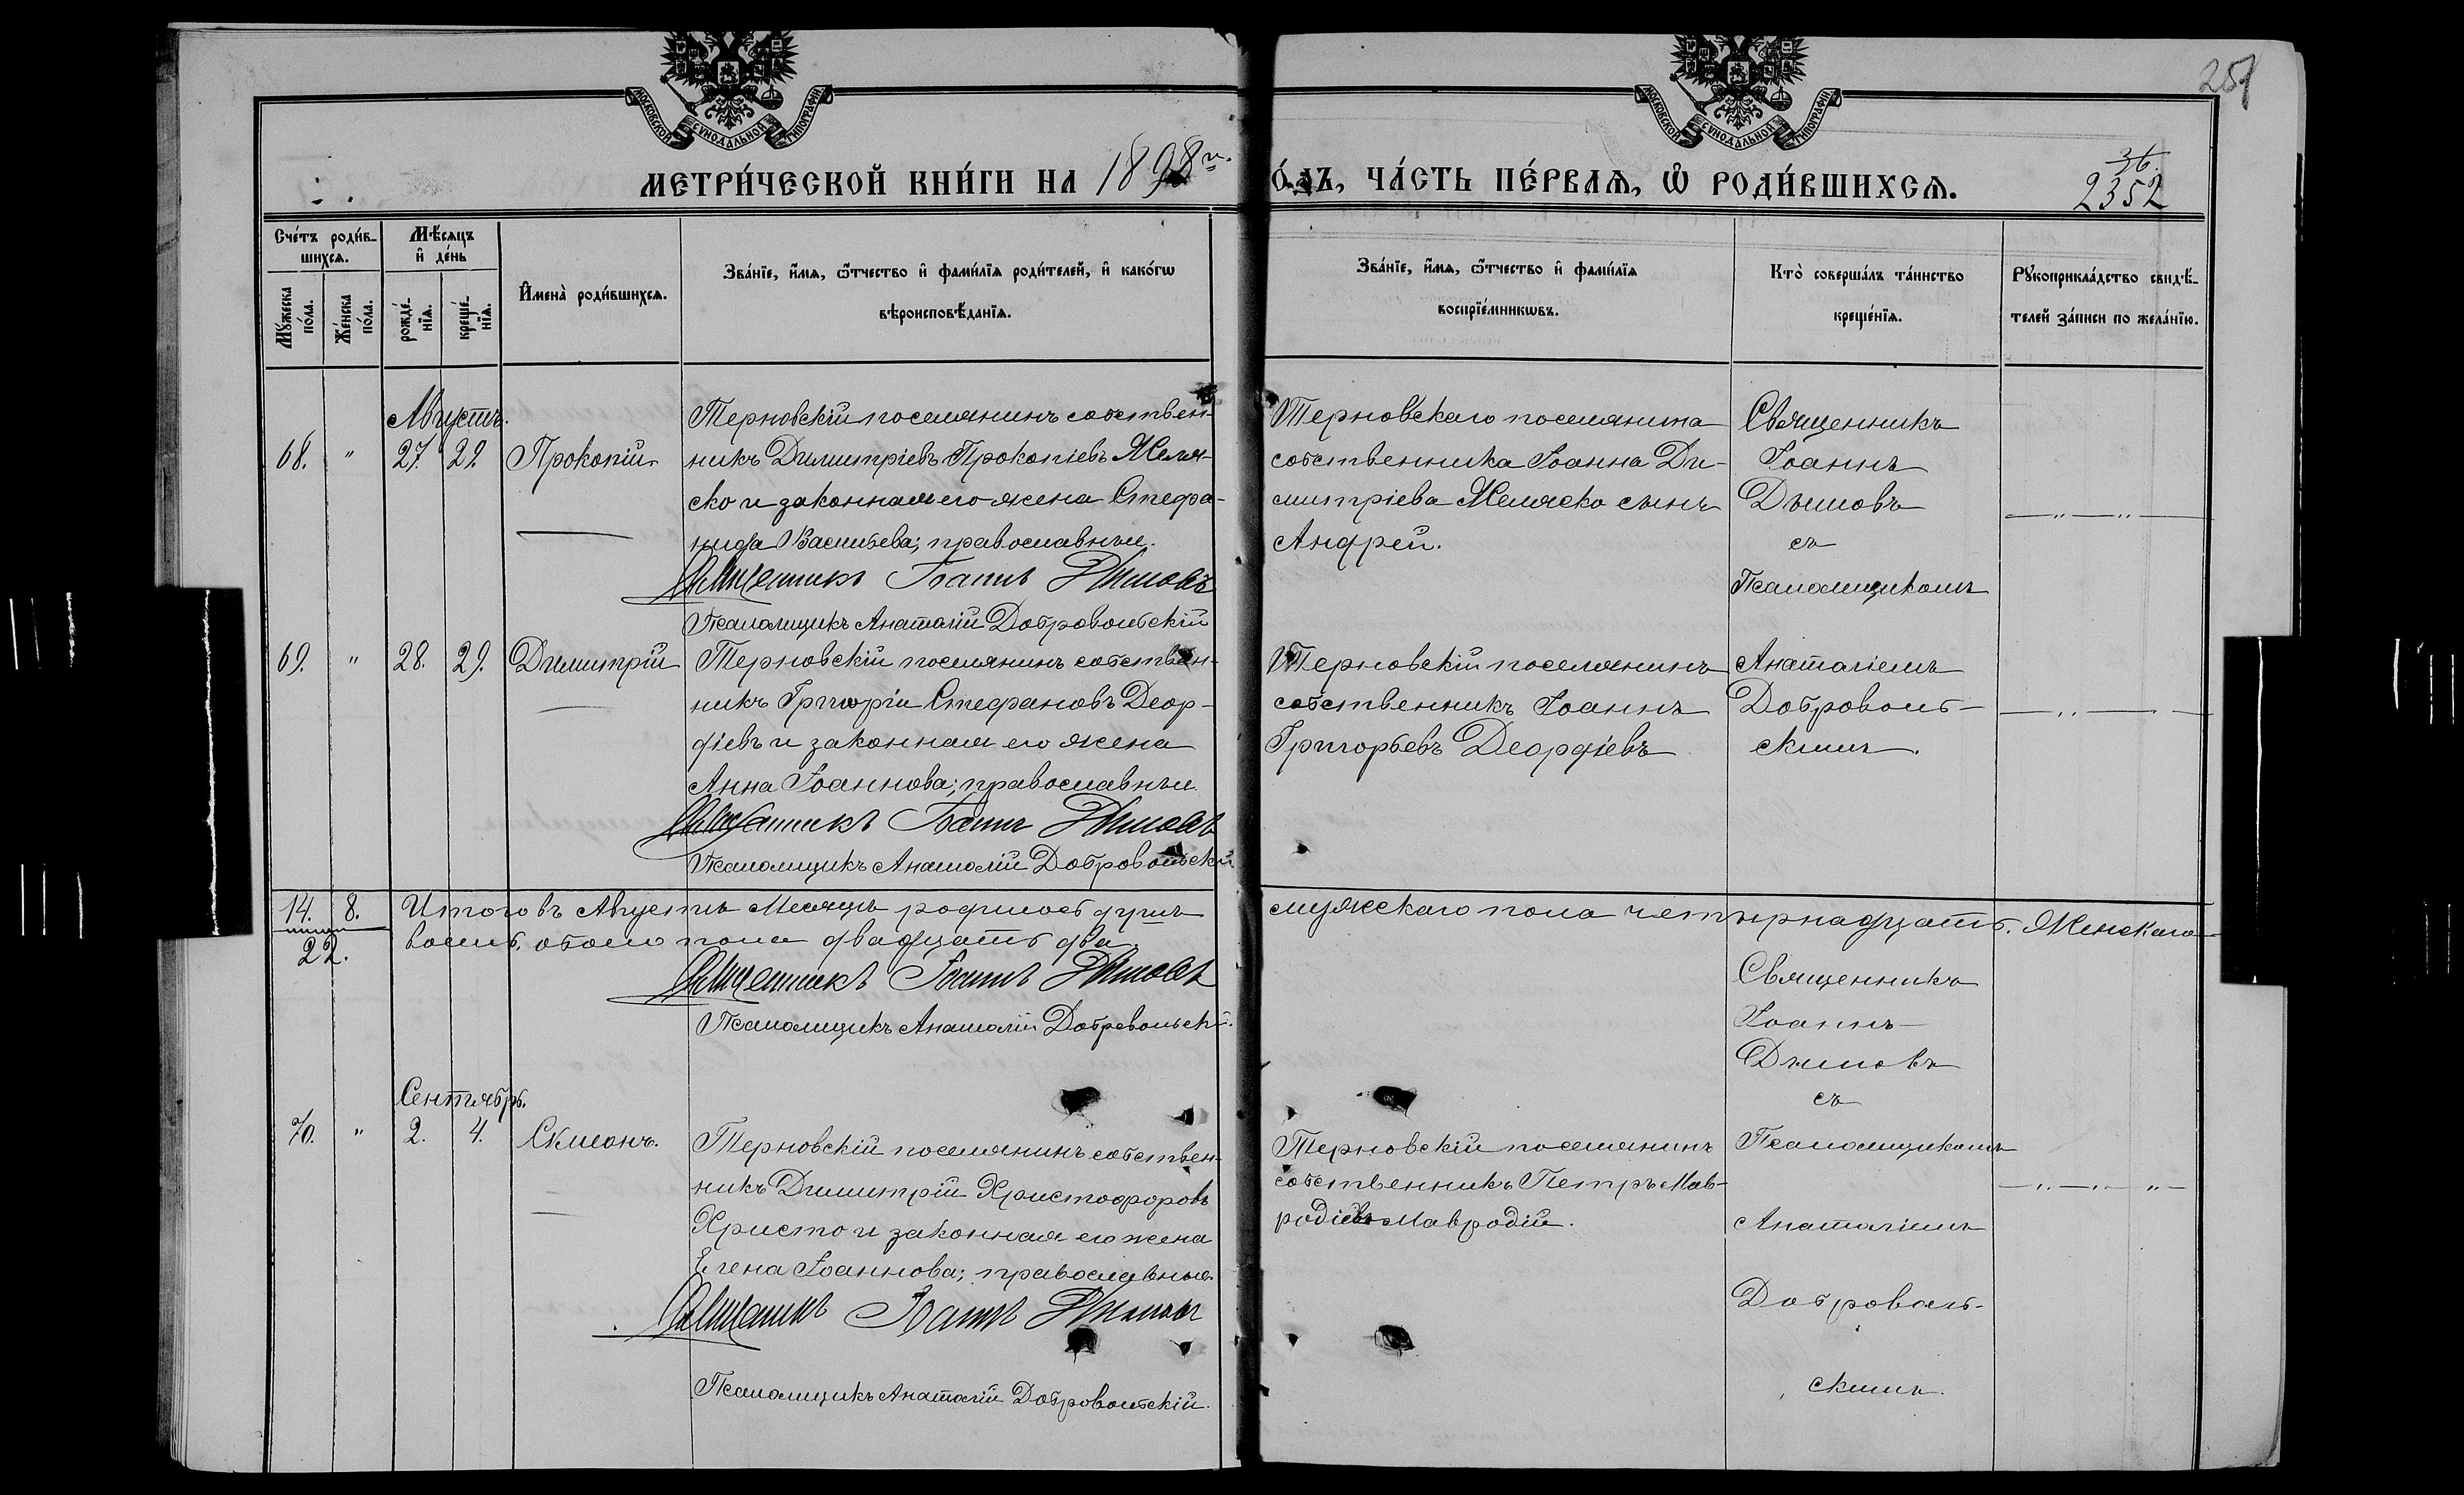 МОСКОВСКОЙ СѴНОДАЛЬНОЙ ТИПОГРАФІИ
МОСКОВСКОЙ СѴНОДАЛЬНОЙ ТИПОГРАФІИ
МЕТРИ́ЧЕСКОЙ КНИ́ГИ НА 1898 г.
О́ДЪ, ЧА́СТЬ ПЕ́РВАѦ, Ѡ҆ РОДИ́ВШИХСѦ.
36.
2352
Сче́тъ роди́в-
шихсѧ.
Мꙋ́жеска по́ла.
Же́нска по́ла.
Мѣ́сѧцъ
и҆ де́нь
рожде́-нїѧ.
креще́-нїѧ.
И҆мена̀ роди́вшихсѧ.
Зва́нїе, и҆́мѧ, ѻ҆́тчество и҆ фами́лїѧ роди́телей, и҆ како́гѡ
вѣроисповѣ́данїѧ.
Зва́нїе, и҆́мѧ, ѻ҆́тчество и҆ фами́лїѧ
воспрїе́мникѡвъ.
Кто̀ соверша́лъ та́инство
креще́нїѧ.
Рꙋкоприкла́дство свидѣ́-
телей за́писи по жела́нїю.
Августъ.
68. " 27. 29. Прокопій
Терновскій поселянинъ собствен-
никъ Димитріевъ Прокопіевъ Меля-
ско и законная его жена Стефа-
нида Васильева; православные.
Священникъ Іоаннъ Дымовъ
Псаломщикъ Анатолій Добровольскій
Терновскаго поселянина
собственника Іоанна Ди-
митріева Меляско сынъ
Андрей.
Священникъ
Іоаннъ
Дымовъ
съ
Псаломщикомъ
69. " 28. 29. Димитрій
Терновскій поселянинъ собствен-
никъ Григорій Стефановъ Деор-
діевъ и законная его жена
Анна Іоаннова; православные.
Священникъ Іоаннъ Дымовъ
Псаломщикъ Анатолій Добровольскій
Терновскій поселянинъ
собственникъ Іоаннъ
Григорьевъ Деордіевъ
Анатоліемъ
Доброволь-
скимъ.
14. 8.
22.
Итого въ Августѣ Месяцѣ родилось душъ мужскаго пола четырнадцать. Женскаго
восемь, обоего пола двадцать два
Священникъ Іоаннъ Дымовъ
Псаломщикъ Анатолій Добровольскій.
Священникъ
Іоаннъ
Дымовъ
съ
Сентябрь.
70. " 2. 4. Симеонъ.
Терновскій поселянинъ собствен-
никъ Димитрій Христофоровъ
Христо и законная его жена
Елена Іоаннова; православные.
Священникъ Іоаннъ Дымовъ
Псаломщикъ Анатолій Добровольскій.
Терновскій поселянинъ
собственникъ Петръ Мав-
родіевъ Мавродій.
Псаломщикомъ
Анатоліемъ
Доброволь-
скимъ.